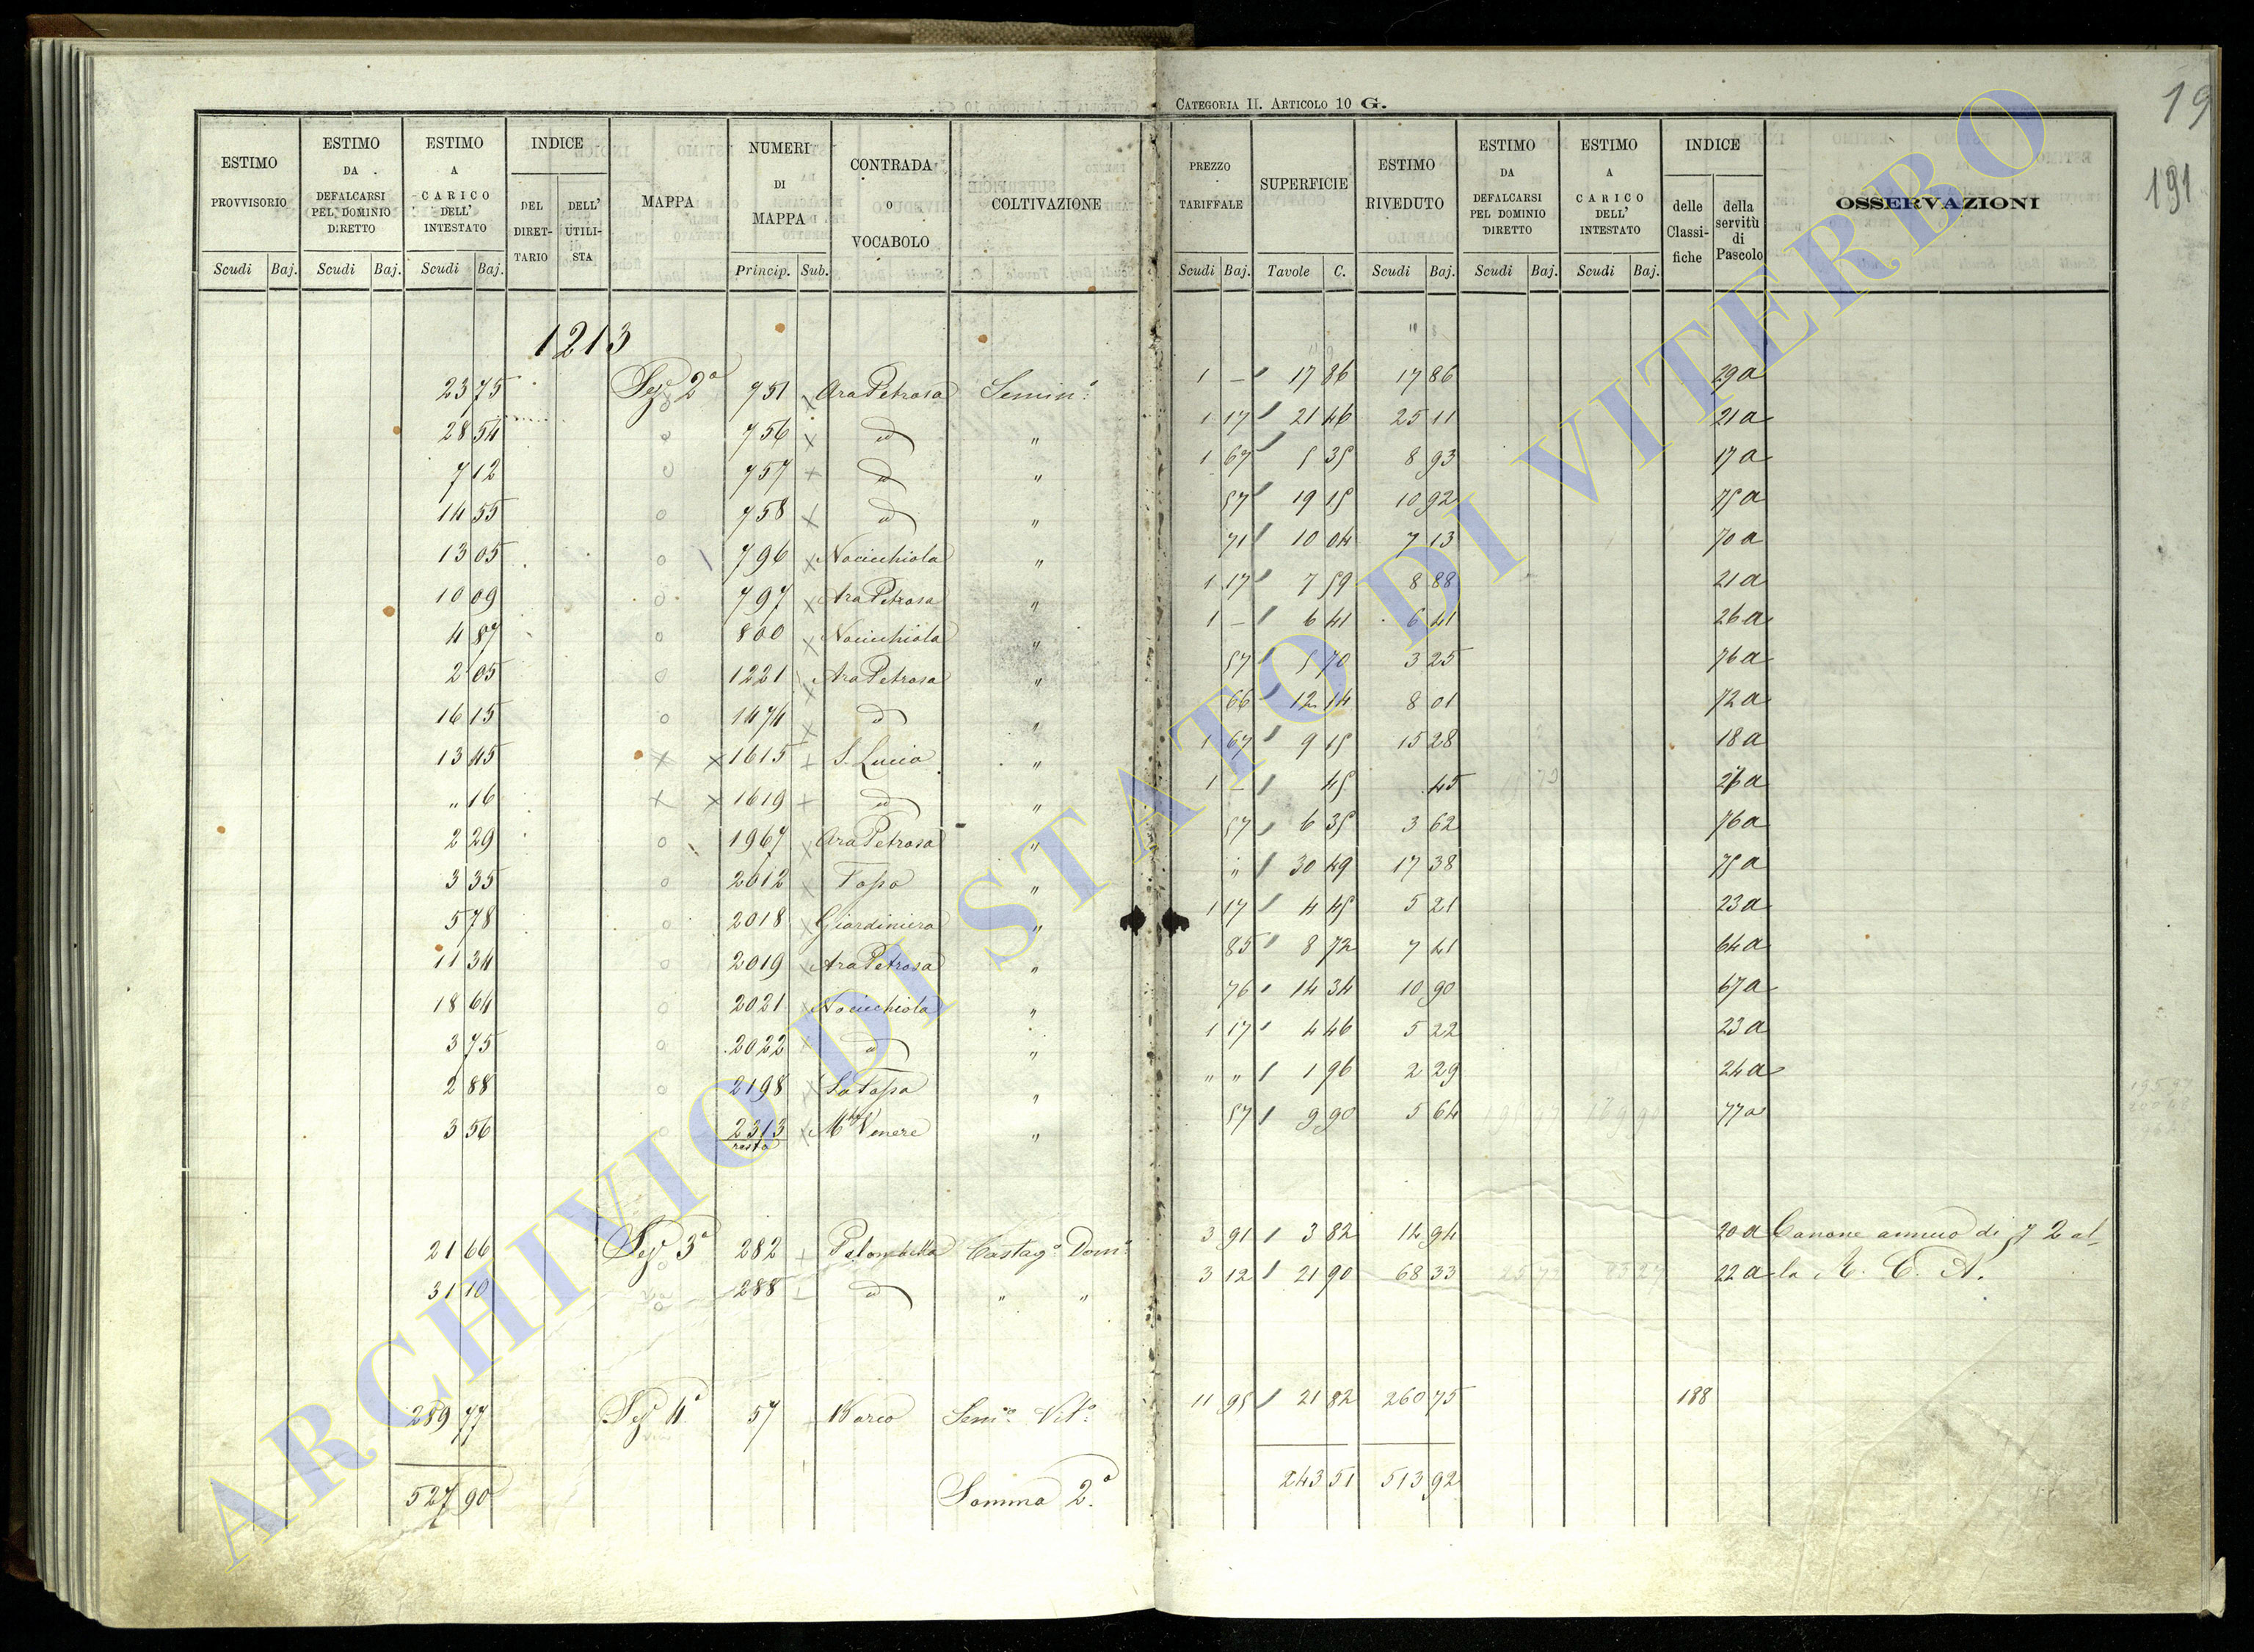 CATEGORIA II. ARTICOLO 10 G.
19
191
ESTIMO PROVVISORIO Scudi Baj.
ESTIMO DA DEFALCARSI PEL DOMINIO DIRETTO Scudi Baj.
ESTIMO A CARICO DELL' INTESTATO Scudi Baj.
INDICE DEL DIRETTARIO DELL' UTILISTA
MAPPA
NUMERI DI MAPPA Princip. Sub.
CONTRADA o VOCABOLO
COLTIVAZIONE
PREZZO TARIFFALE Scudi Baj.
SUPERFICIE Tavole C.
ESTIMO RIVEDUTO Scudi Baj.
ESTIMO DA DEFALCARSI PEL DOMINIO DIRETTO Scudi Baj.
ESTIMO A CARICO DELL' INTESTATO Scudi Baj.
INDICE delle Classifiche della servitù di Pascolo
OSSERVAZIONI
1213
23 75 Sez 2ª 751 Ara Petrosa Semin: 1 — 17 86 17 86 29a
28 54 756 id " 1 17 21 46 25 11 21a
7 12 757 id " 1 67 5 35 8 93 17a
14 55 758 id " 57 19 15 10 92 75a
13 05 796 Nocicchiola " 71 10 04 7 13 70a
10 09 797 Ara Petrosa " 1 17 7 59 8 88 21a
4 87 800 Nocicchiola " 1 — 6 41 6 41 26a
2 05 1221 Ara Petrosa " 57 5 70 3 25 76a
16 15 1474 id " 66 12 14 8 01 72a
13 45 1615 S. Lucia " 1 67 9 15 15 28 18a
" 16 1619 id " 1 — 45 45 26a
2 29 1967 Ara Petrosa " 57 6 35 3 62 76a
3 35 2012 Fossa " " 30 49 17 38 75a
5 78 2018 Giardiniera " 1 17 4 45 5 21 23a
11 34 2019 Ara Petrosa " 85 8 72 7 41 64a
18 64 2021 Nocicchiola " 76 14 34 10 90 67a
3 75 2022 id " 1 17 4 46 5 22 23a
2 88 2198 La Fossa " " " 1 96 2 29 24a
3 56 2313 resto Venere " 57 9 90 5 64 77a
21 66 Sez 3ª 282 Palombella Castagº Domº 3 91 3 82 14 94 20a Canone annuo di 2 al-
31 10 288 id " " 3 12 21 90 68 33 22a la R. C. A.
289 77 Sez 4ª 57 Barco Semº Vitº 11 95 21 82 260 75 188
527 90 Somma 2ª 243 51 513 92
ARCHIVIO DI STATO DI VITERBO